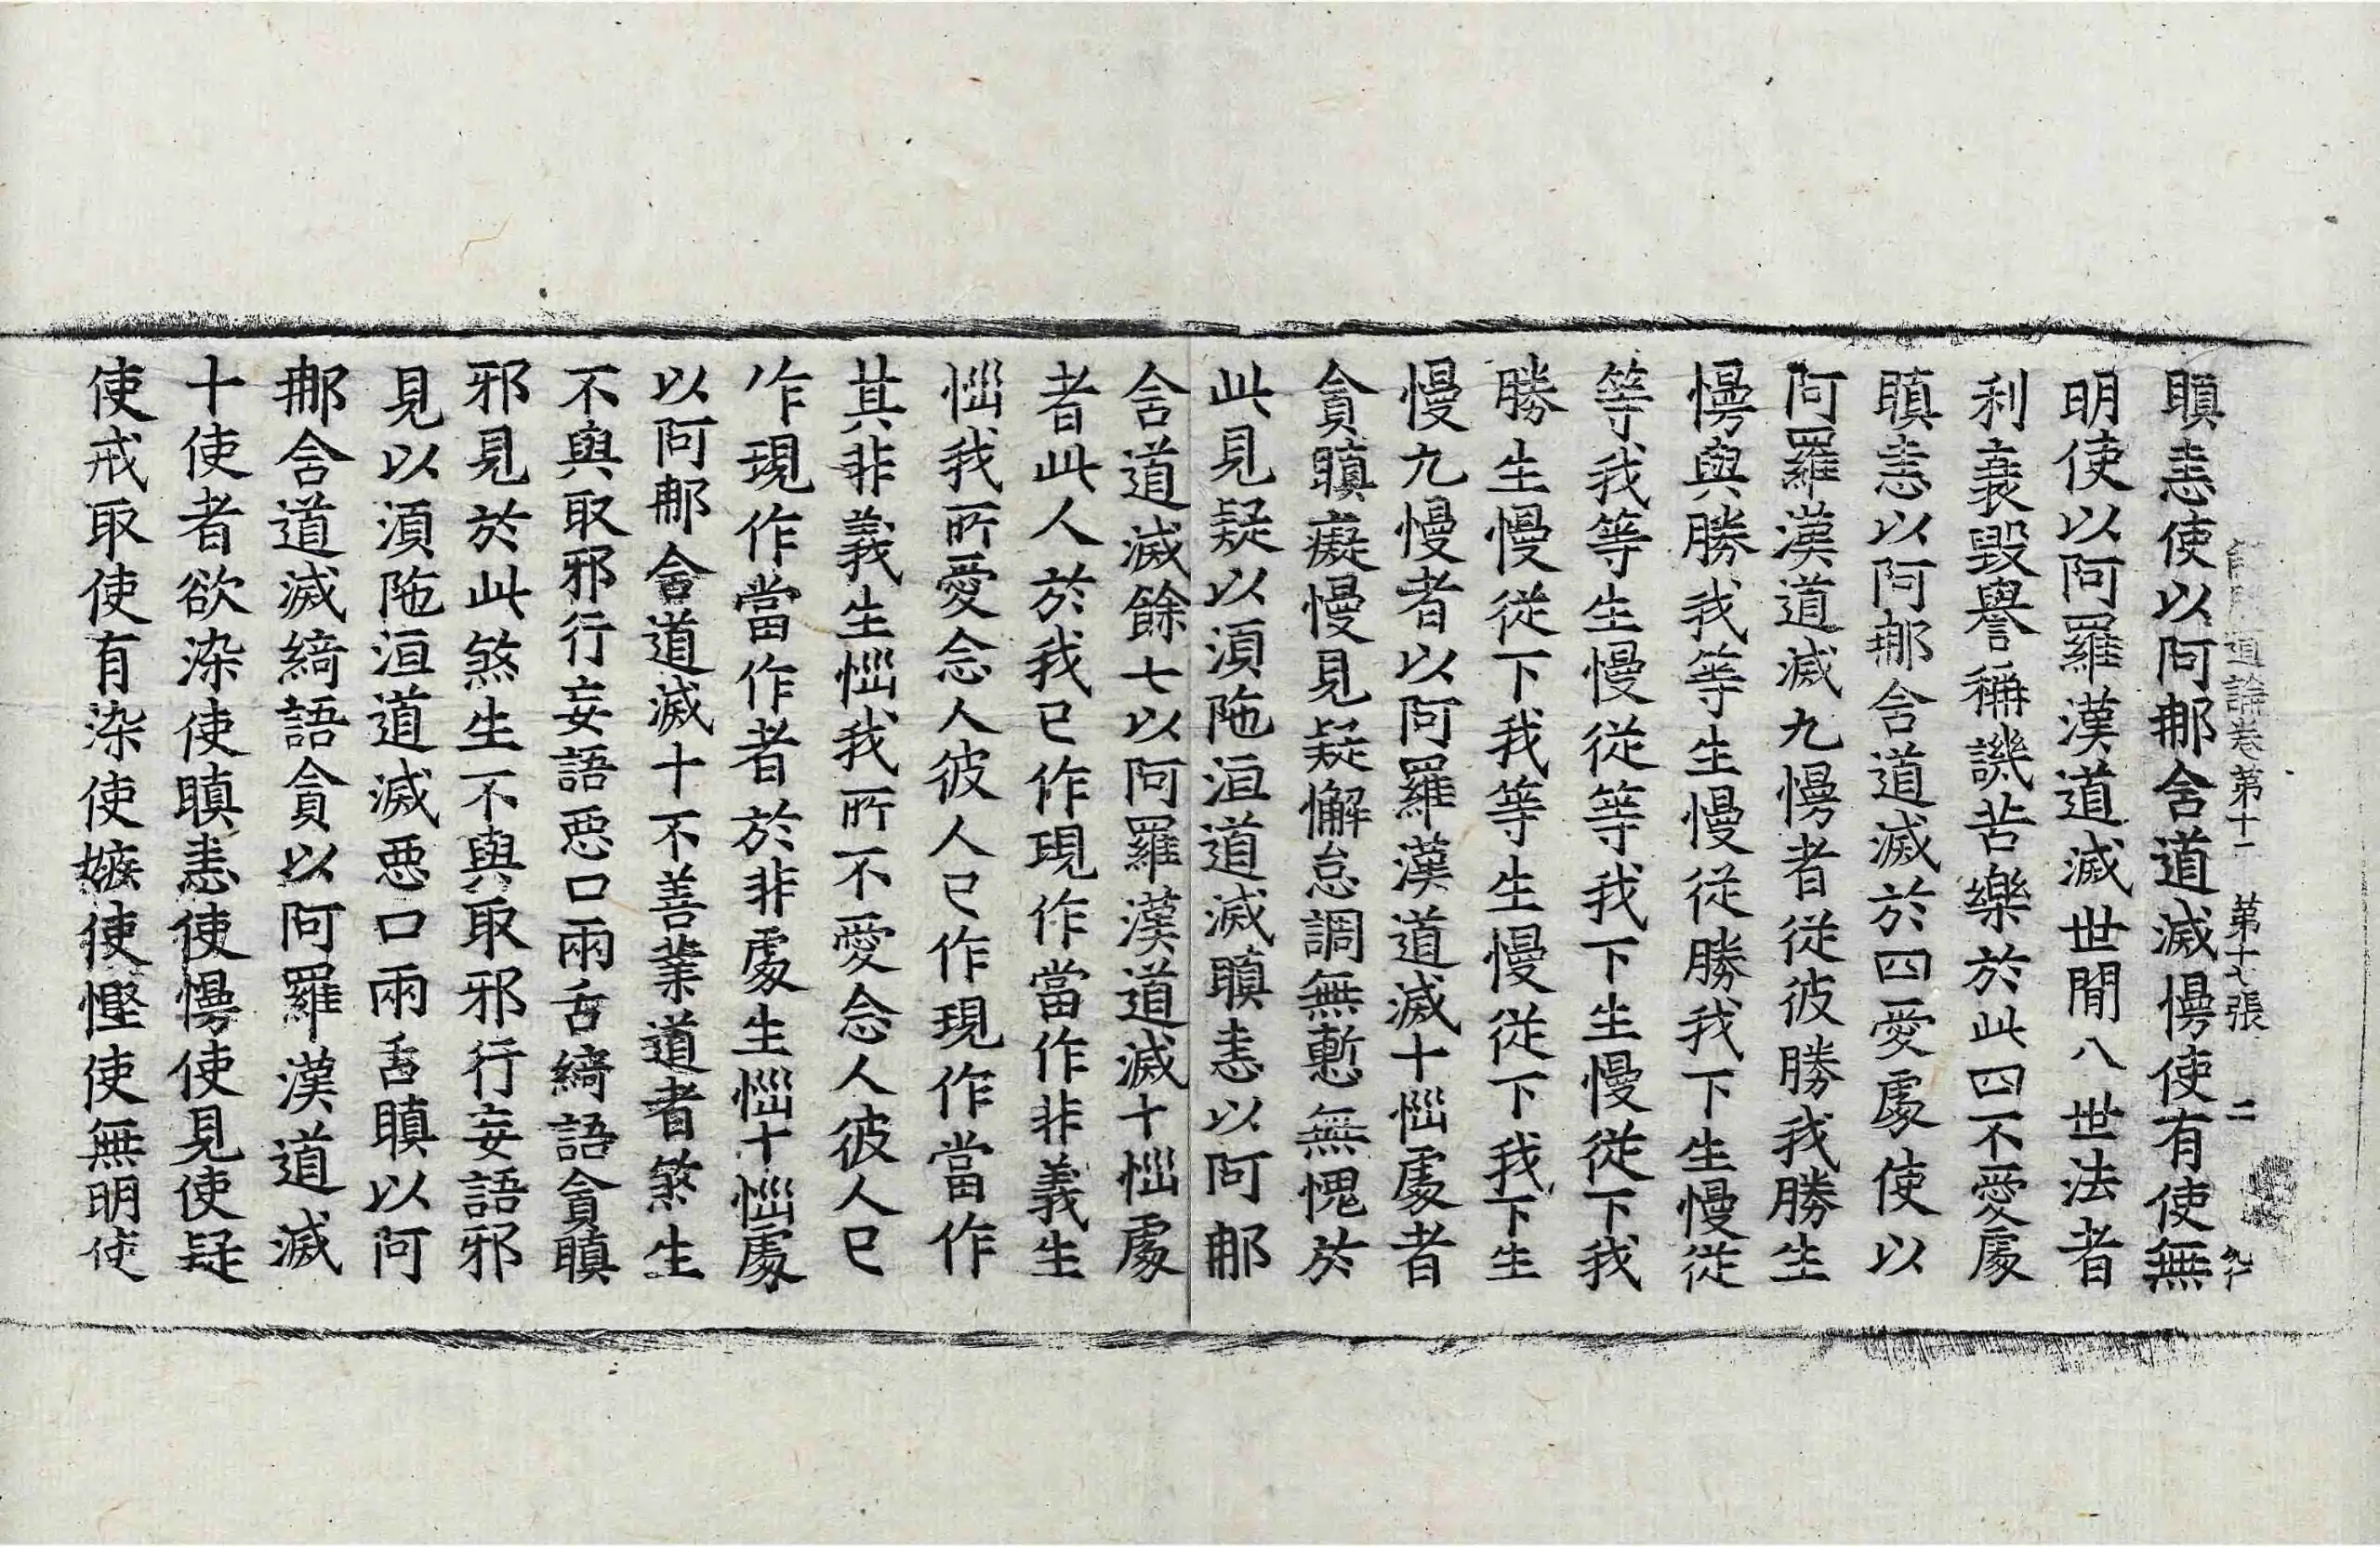 道論卷第十一 第十七張 二
瞋恚使以阿那含道滅慢使有使無
明使以阿羅漢道滅世間八世法者
利衰毀譽稱譏苦樂於此四不愛處
瞋恚以阿那含道滅於四愛處使以
阿羅漢道滅九慢者從彼勝我勝生
慢與勝我等生慢從勝我下生慢從
等我等生慢從等我下生慢從下我
勝生慢從下我等生慢從下我下生
慢九慢者以阿羅漢道滅十惱處者
貪瞋癡慢見疑懈怠調無慙無愧於
此見疑以須陁洹道滅瞋恚以阿那
含道滅餘七以阿羅漢道滅十惱處
者此人於我已作現作當作非義生
惱我所愛念人彼人已作現作當作
其非義生惱我所不愛念人彼人已
作現作當作者於非處生惱十惱處
以阿那含道滅十不善業道者煞生
不與取邪行妄語惡口兩舌綺語貪瞋
邪見於此煞生不與取邪行妄語邪
見以須陁洹道滅惡口兩舌瞋以阿
那含道滅綺語貪以阿羅漢道滅
十使者欲染使瞋恚使慢使見使疑
使戒取使有染使嫉使慳使無明使